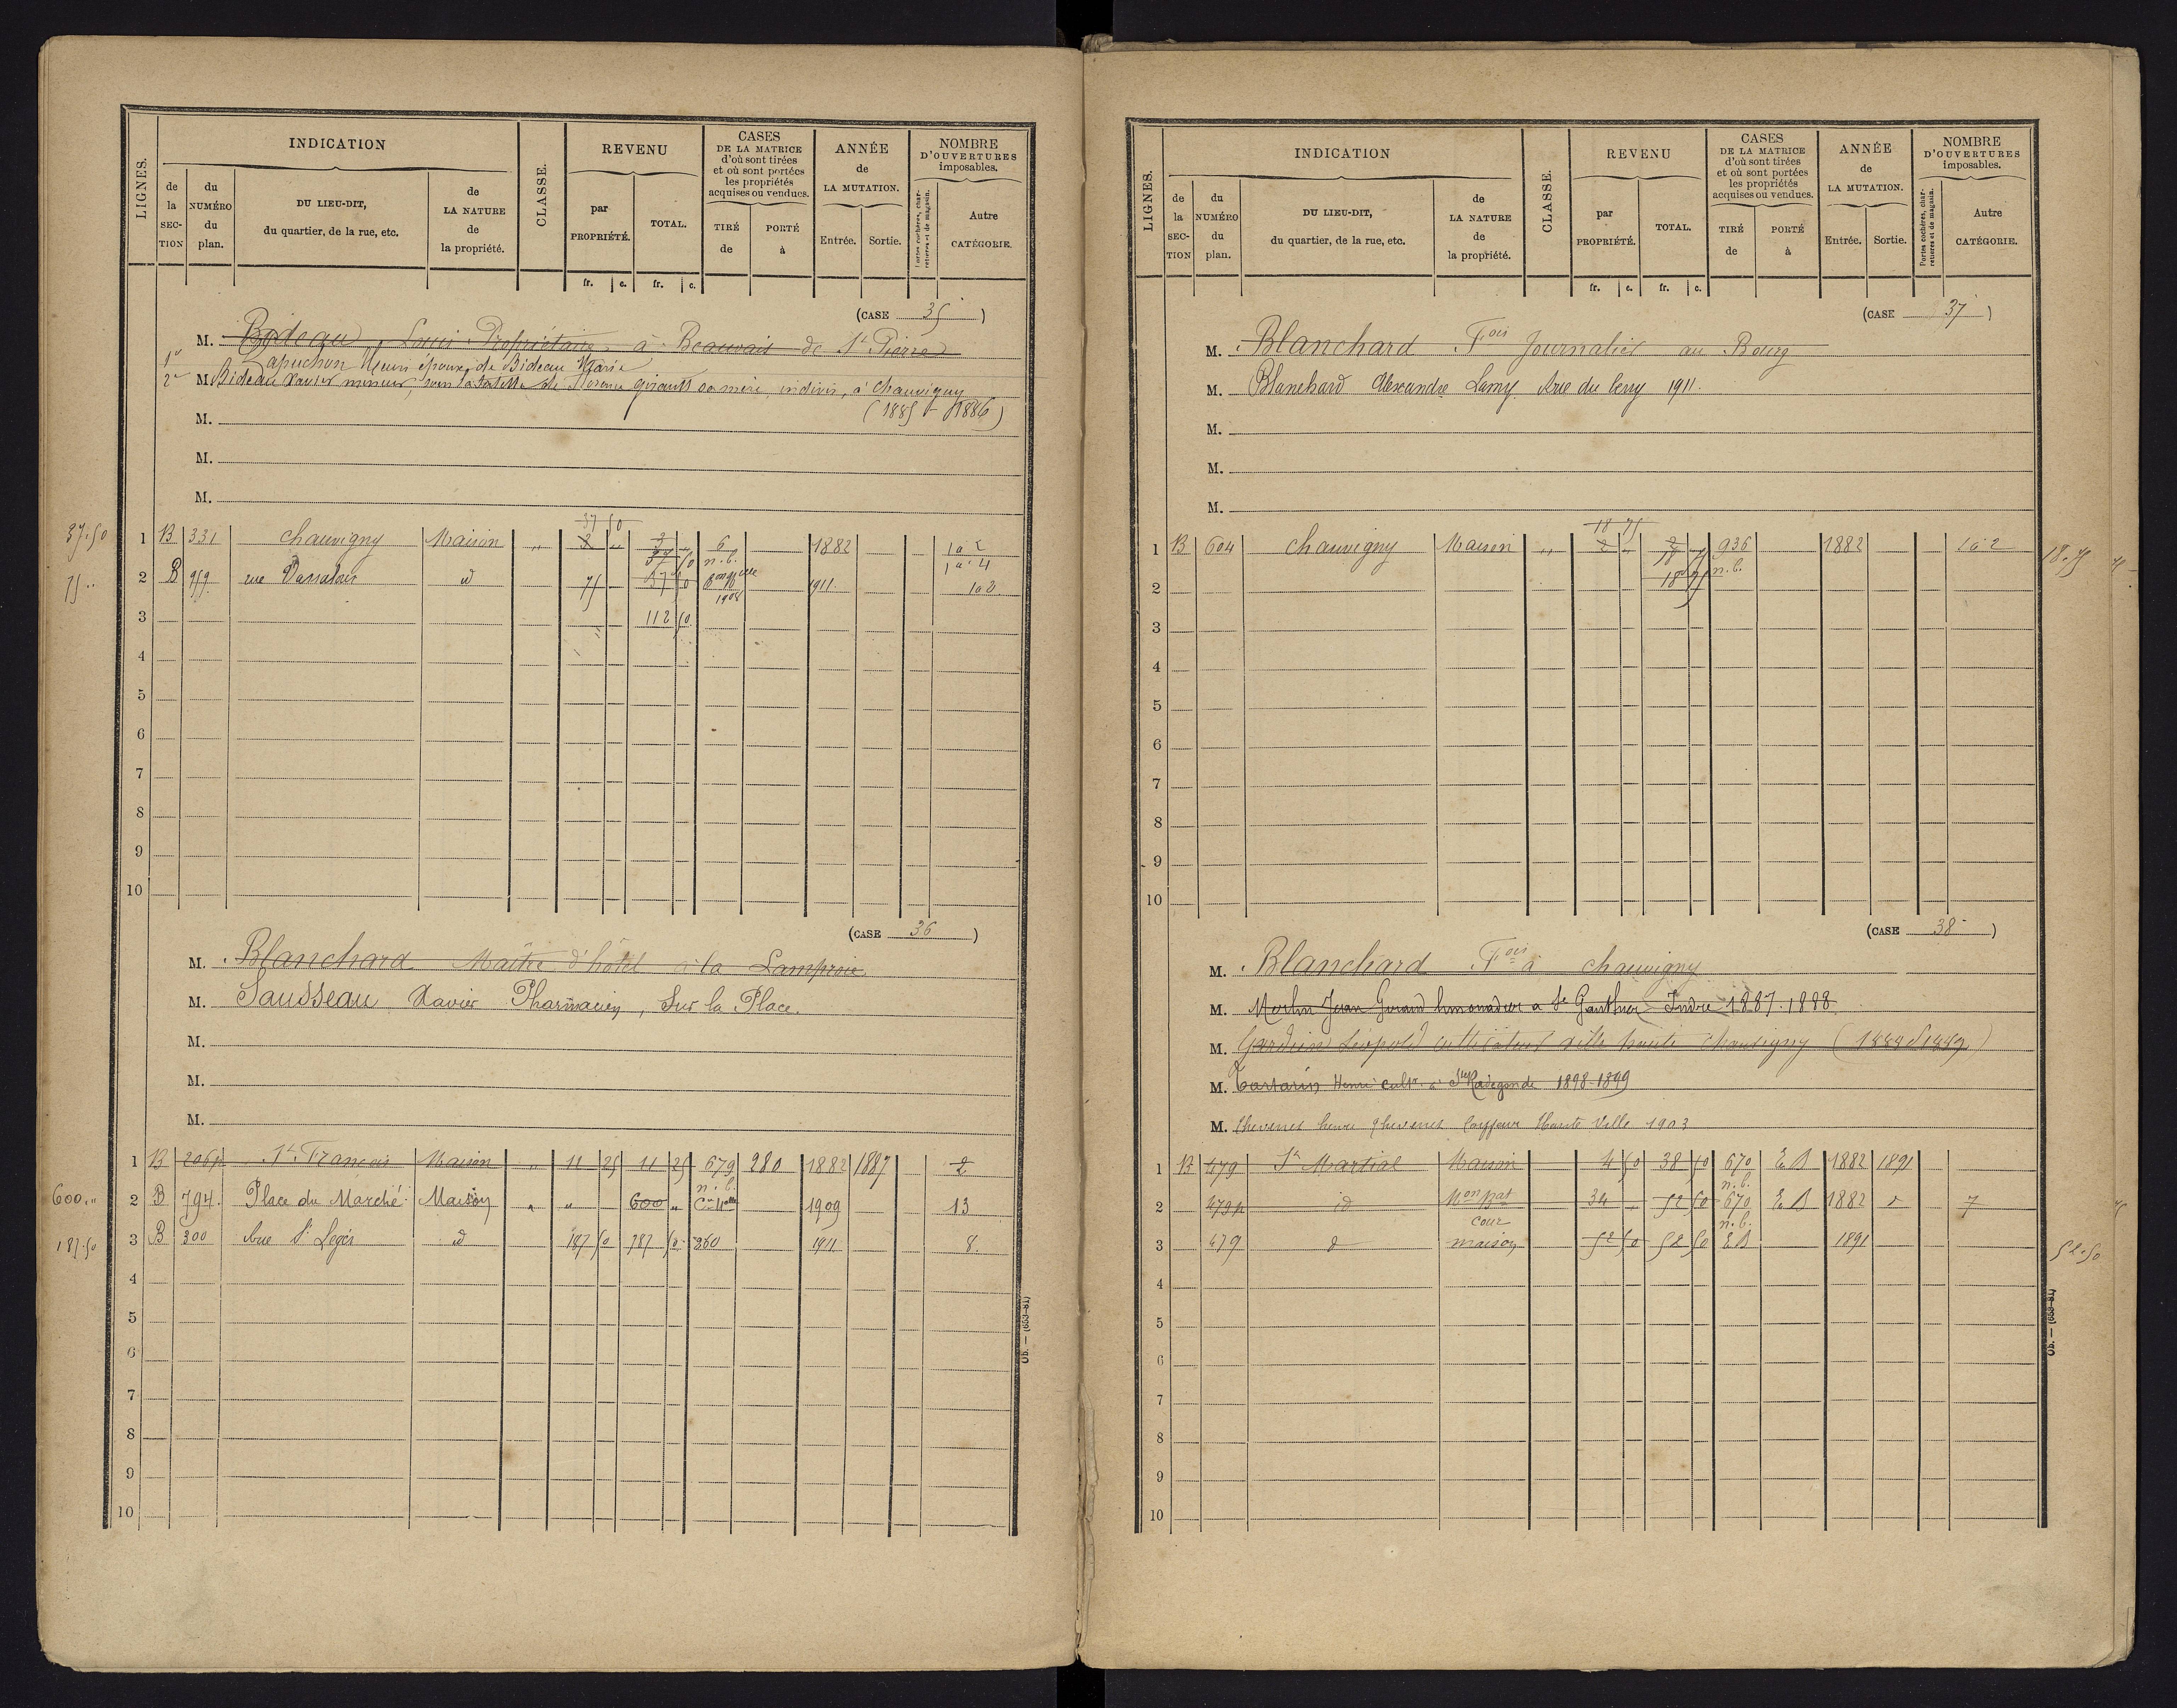 LIGNES.
INDICATION
CLASSE.
REVENU
CASES
DE LA MATRICE
d'où sont tirées
et où sont portées
les propriétés
acquises ou vendues.
ANNÉE
de
LA MUTATION.
NOMBRE
D'OUVERTURES
imposables.
de
la
SEC-
TION
du
NUMÉRO
du
plan.
DU LIEU-DIT,
du quartier, de la rue, etc.
de
LA NATURE
de
la propriété.
par
PROPRIÉTÉ.
TOTAL.
TIRÉ
de
PORTÉ
à
Entrée.
Sortie.
Portes cochères, char-
retières et de magasin.
Autre
CATÉGORIE.
fr. c. fr. c.
(CASE 35 )
M. Bideau, Louis Propriétaire à Beauvais de St Pierre
1° Lapuchon Henri époux de Bideau Marie
2° M. Bideau Xavier mineur, sous la tutelle de Florence Girault sa mère, indivis, à Chauvigny
M. (1885-1886)
M.
M.
37.50 1 B 331 Chauvigny Maison " 37 50 3 " 3 " 6 1882 1 à 2
37 50 n.b. 1 à 4
75 .. 2 B 959 rue Vassalour id 75 37 50 1911 1 à 2
1908
3 112 50
4
5
6
7
8
9
10
(CASE 36 )
M. Blanchard Maître d'hôtel à la Lamproie
M. Sausseau Xavier Pharmacien, Sur la Place.
M.
M.
M.
1 B 206p St François Maison " 11 25 11 25 679 280 1882 1887 2
n.b.
600 .. 2 B 794. Place du Marché Maison " " 600 " 1909 13
187.50 3 B 300 Rue St Léger id 187 50 787 50 260 1911 8.
4
5
6
7
8
9
10
Ob. — (653-81)
LIGNES.
INDICATION
CLASSE.
REVENU
CASES
DE LA MATRICE
d'où sont tirées
et où sont portées
les propriétés
acquises ou vendues.
ANNÉE
de
LA MUTATION.
NOMBRE
D'OUVERTURES
imposables.
de
la
SEC-
TION
du
NUMÉRO
du
plan.
DU LIEU-DIT,
du quartier, de la rue, etc.
de
LA NATURE
de
la propriété.
par
PROPRIÉTÉ.
TOTAL.
TIRÉ
de
PORTÉ
à
Entrée.
Sortie.
Portes cochères, char-
retières et de magasin.
Autre
CATÉGORIE.
fr. c. fr. c.
(CASE 37 )
M. Blanchard Fois Journalier au Bourg
M. Blanchard Alexandre Lamy Rue du Berry 1911.
M.
M.
M.
1 B 604 Chauvigny Maison " 18 75 2 " 2 " 936 1882 1 à 2 18.75
18 75 n.b.
2 18 75
3
4
5
6
7
8
9
10
(CASE 38 )
M. Blanchard Fois à Chauvigny
M. Merlin Jean Gérand limonadier à St Gaultier Indre 1887.1888
M. Gardien Léopold cultivateur ville haute Chauvigny (1888 1889)
M. Tartarin, Henri cultr à Ste Radegonde 1898-1899
M. Chevenet henri Chevenet Coiffeur Haute Ville 1903
1 B 479 St Martial Maison 4 50 38 50 670 E B 1882 1891
n.b.
2 479p id 34 " 52 50 670 E B 1882 d 7
cour n.b.
3 479 d maison 52 50 52 50 E B 1891 52.50
4
5
6
7
8
9
10
Ob. — (653-81)